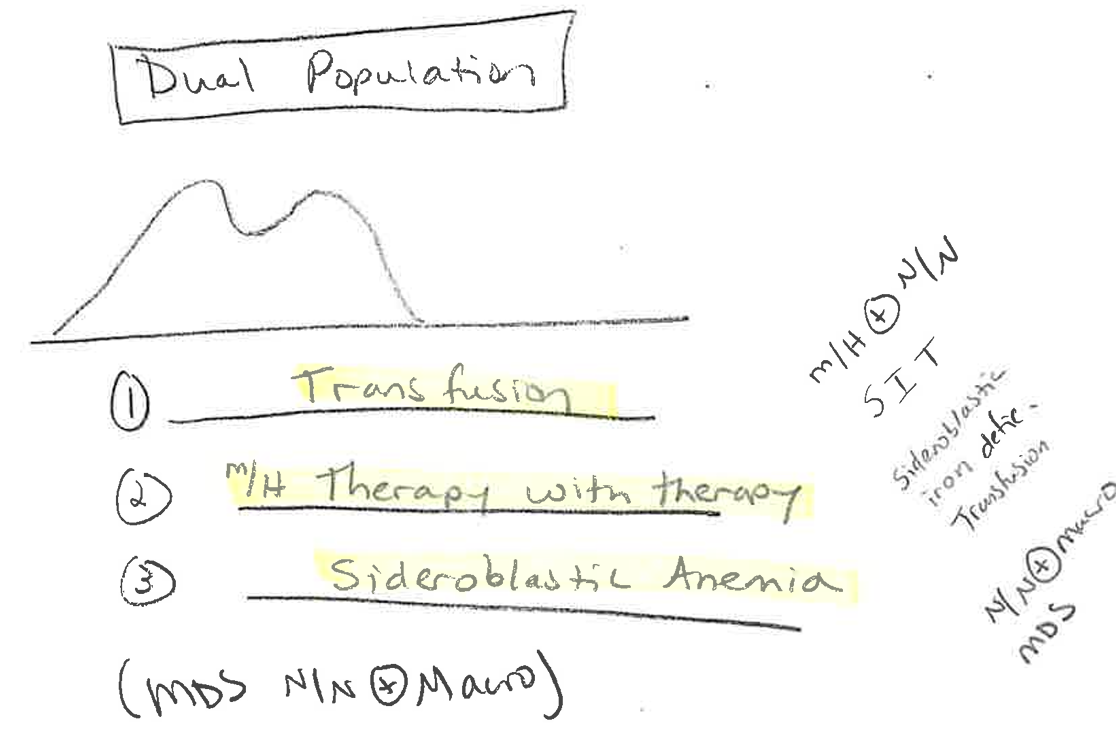 Dual Population
① Transfusion
② m/H Therapy with therapy
③ Sideroblastic Anemia
(MDS N/N ⊕ Macro)
m/H ⊕ N/N
SIT
Sideroblastic
iron defic.
Transfusion
N/N ⊕ Macro
MDS